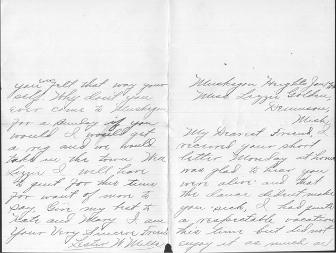 Muskegon Heights Jan
Miss Lizzie Golden
Dennison,
Mich,
My Dearest Friend, I
received your short
letter Monday at home
was glad to hear you
were alive and that
the dance didn't make
you sick, I had quite
a respectable vacation
this time but did not
enjoy it as much as
you felt that way your
self. Why don't you
ever come to Muskegon
for a Sunday if you
would I would get
a rig and we would
take in the town. Well
Lizzie I will have
to quit for this time
for want of more to
say. Give my best to
Kate and Mary. I am
Your Very Sincere Friend
Lester W